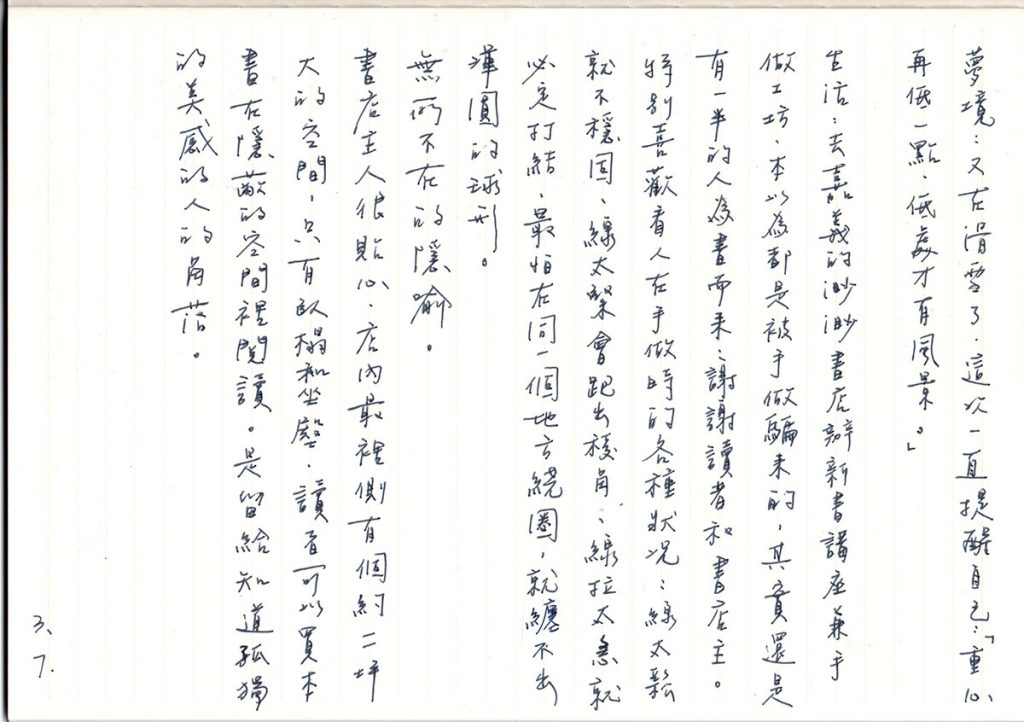 夢境：又在滑雪了，這次一直提醒自己：「重心
再低一點，低處才有風景。」
生活：去嘉義的渺渺書店辦新書講座兼手
做工坊，本以為都是被手做騙來的，其實還是
有一半的人為書而來；謝謝讀者和書店主。
特別喜歡看人在手做時的各種狀況：線太鬆
就不穩固、線太緊會跑出稜角、線拉太急就
必定打結，最怕在同一個地方繞圈，就纏不出
渾圓的球形。
無所不在的隱喻。
書店主人很貼心，店內最裡側有個約二坪
大的空間，只有臥榻和坐墊，讀者可以買本
書在隱蔽的空間裡閱讀。是留給知道孤獨
的美感的人的角落。
3、7.